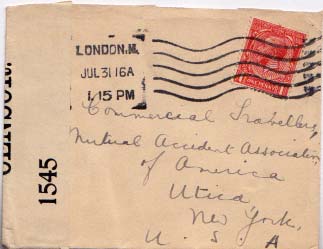 LONDON.M.
JUL 31 16A
1.15 PM
Commercial Travellers,
Mutual Accident Association
of America
Utica
New York,
U. S. A
CENSOR.
1545